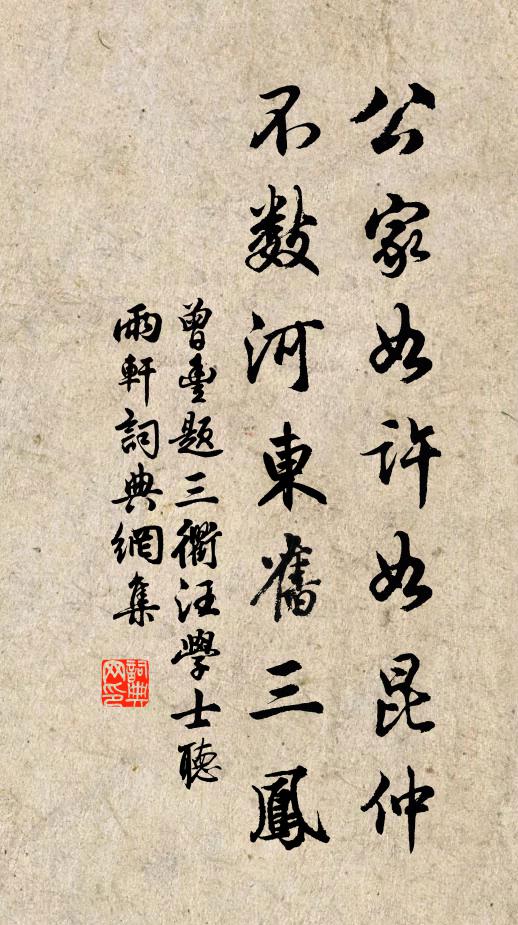 公家如許如昆仲
不數河東舊三鳳
曾豐題三衢汪學士聽
雨軒詞典網集
詞典網印